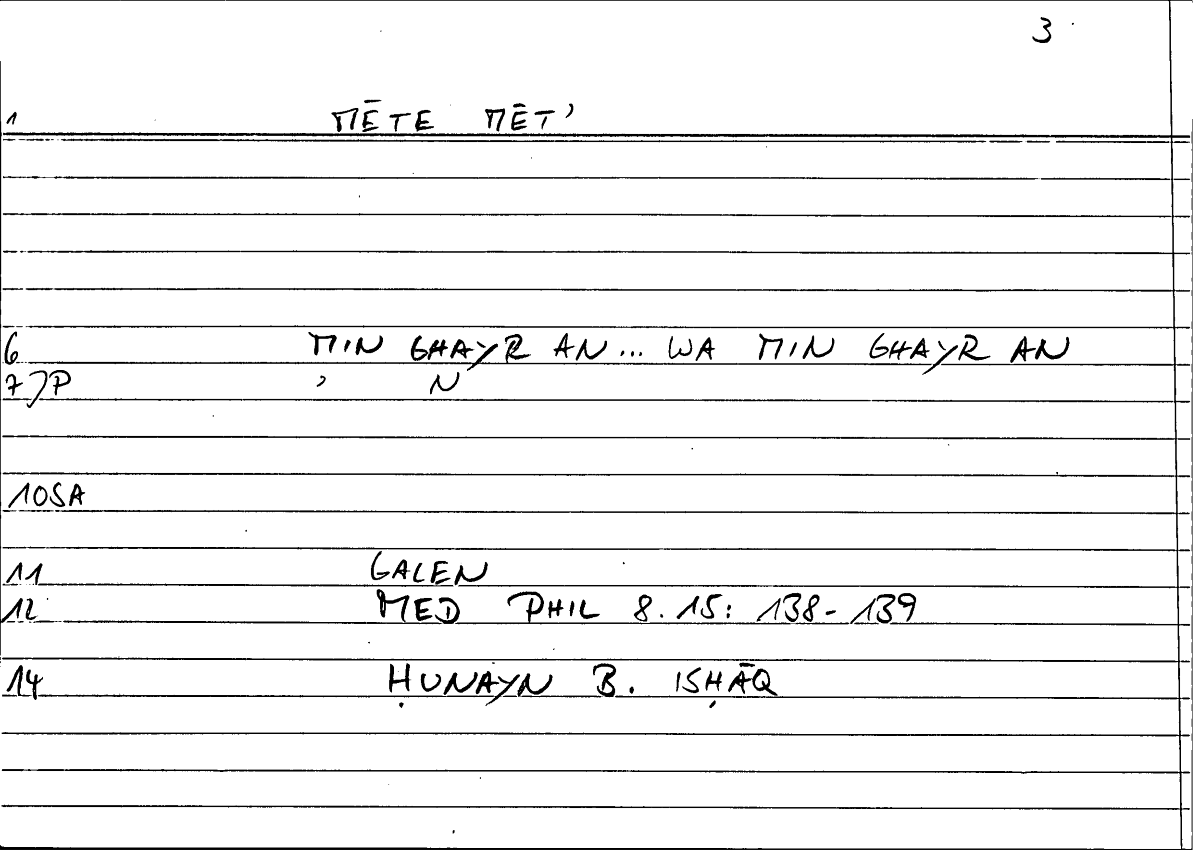 3
1 MĒTE MĒT'
6 MIN GHAYR AN... WA MIN GHAYR AN
7JP ' N
10SA
11 GALEN
12 MED PHIL 8.15: 138-139
14 ḤUNAYN B. ISḤĀQ